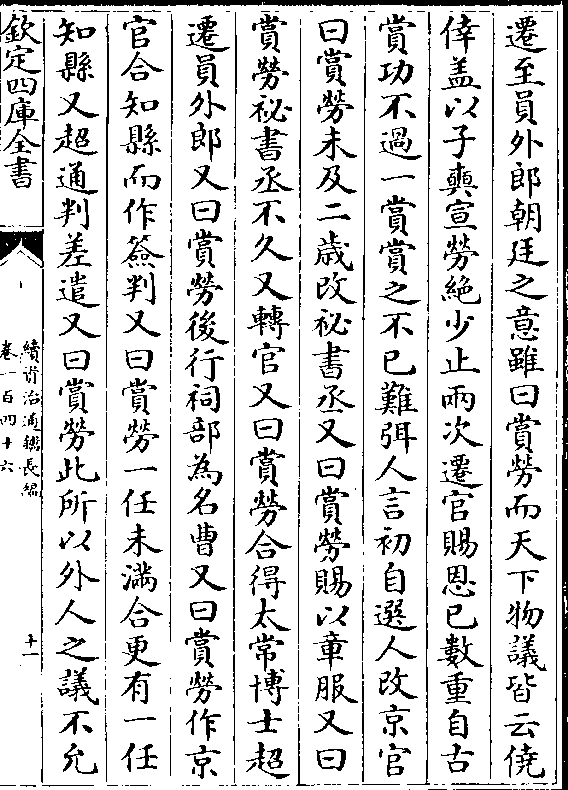 遷至員外郎朝廷之意雖曰賞勞而天下物議皆云僥
倖盖以子奭宣勞絶少止兩次遷官賜恩已數重自古
賞功不過一賞賞之不已難弭人言初自選人改京官
曰賞勞未及二歳改祕書丞又曰賞勞賜以章服又曰
賞勞祕書丞不久又轉官又曰賞勞合得太常博士超
遷員外郎又曰賞勞後行祠部為名曹又曰賞勞作京
官合知縣而作簽判又曰賞勞一任未滿合更有一任
知縣又超通判差遣又曰賞勞此所以外人之議不允
欽定四庫全書
續資治通鑑長編
卷一百四十六
十一